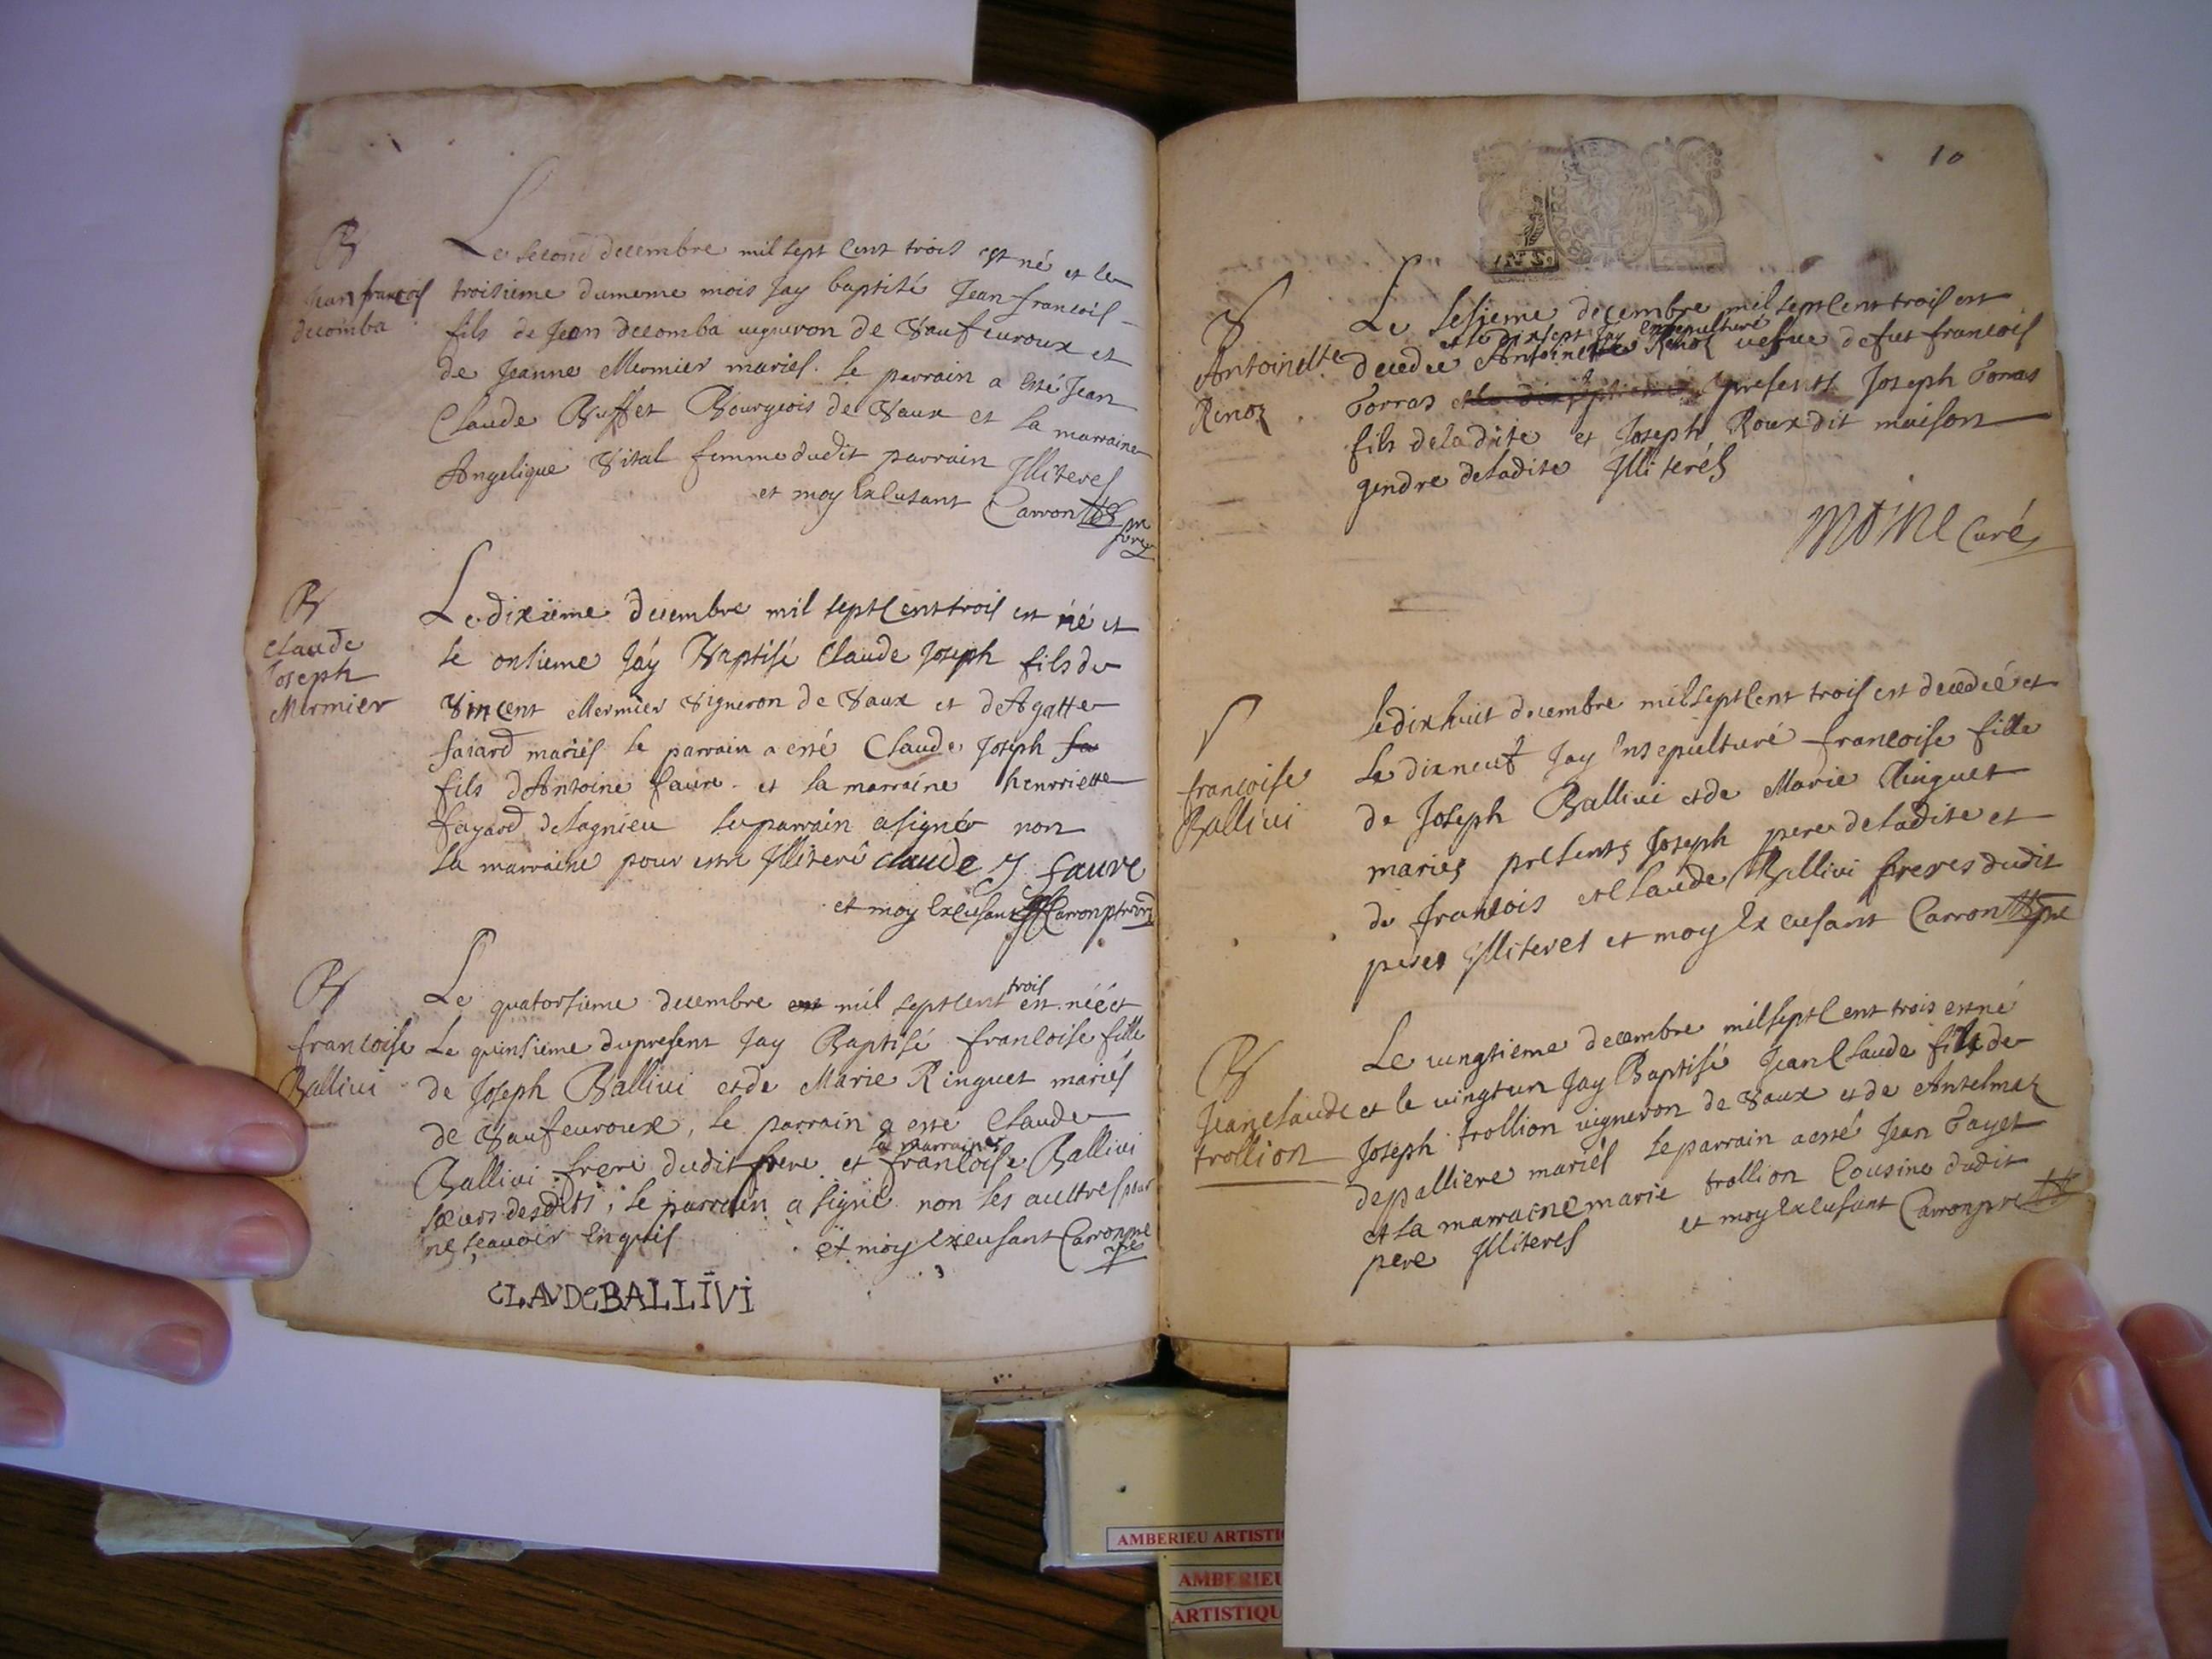 B
Jean francois
decomba
Le second decembre mil sept cent trois est né et le
troisieme dumeme mois Jay baptisé Jean francois
fils de Jean decomba vigneron de Vaufevroux et
de Jeanne Mermier mariés. le parrain a esté Jean
Claude Buffet Bourgeois de Vaux et la marraine
Angelique Vital femme dudit parrain Illiteres
et moy Excusant Carron
B
Claude
Joseph
Mermier
Le dixieme decembre mil sept cent trois est né et
le onsieme Jay Baptisé Claude Joseph fils de
Vincent Mermier Vigneron de Vaux et de Agatte
faiard mariés le parrain a esté Claude Joseph fa
fils d'Antoine faure et la marraine henriette
fayard de lagnieu le parrain a signé non
la marraine pour estre Illiteré claude J. faure
et moy Excusant Carron
B
francoise
Ballivi
Le quatorsieme decembre est mil sept cent trois est née et
Le quinsieme dupresent Jay Baptisé francoise fille
de Joseph Ballivi et de Marie Ringuet mariés
de Vaufevroux, le parrain a esté Claude
Ballivi frere dudit frere et la marraine francoise Ballivi
soeurs desdits, le parrain a signé non les aultres pour
ne scavoir Enquis et moy Excusant Carron
CLAVDe BALLIVI
10
Antoinette
Renoz
Le sesieme decembre mil sept cent trois est
decedee et le dixsept Jay Ensepulturé Antoinette Renoz vefve de fut francois
Torras presents Joseph Torras
fils deladite et Joseph Roux dit maison
gendre deladite Illiterés
MOINE Curé
francoise
Ballivi
le dixhuit decembre mil sept cent trois est decedée et
Le dixneuf Jay Ensepulturé francoise fille
de Joseph Ballivi et de Marie Ringuet
mariés presents Joseph pere deladite et
de francois et Claude Ballivi freres dudit
pere Illiteres et moy Excusant Carron
B
Jean Claude
trollion
Le vingtieme decembre mil sept cent trois est né
et le vingt un Jay Baptisé Jean Claude fils de
Joseph trollion vigneron de Vaux et de Antelmaz
depalliere mariés le parrain a esté Jean Payet
et la marraine marie trollion Cousine dudit
pere Illiteres et moy Excusant Carron pre
AMBERIEU ARTISTI
AMBERIEU
ARTISTIQU